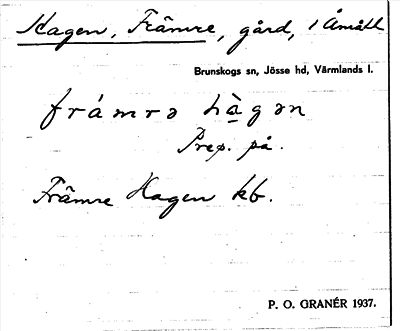 Hagen, Främre, gård, 1 Åmått
Brunskogs sn, Jösse hd, Värmlands l.
frámrə hàgən
Prep. på.
Främre Hagen kb.
P. O. GRANÉR 1937.